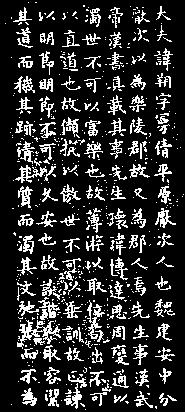 大夫諱朔字曼倩平原厭次人也魏建安中分
厭次以為樂陵郡故又為郡人焉先生事漢武
帝漢書具載其事先生瓌瑋博達思周變通以
濁世不可以富樂也故薄游以取位苟出不可
以直道也故頡頏以傲世不可以垂訓故正諫
以明節明節不可以久安也故詼諧以取容潔
其道而穢其跡清其質而濁其文弛張而不為